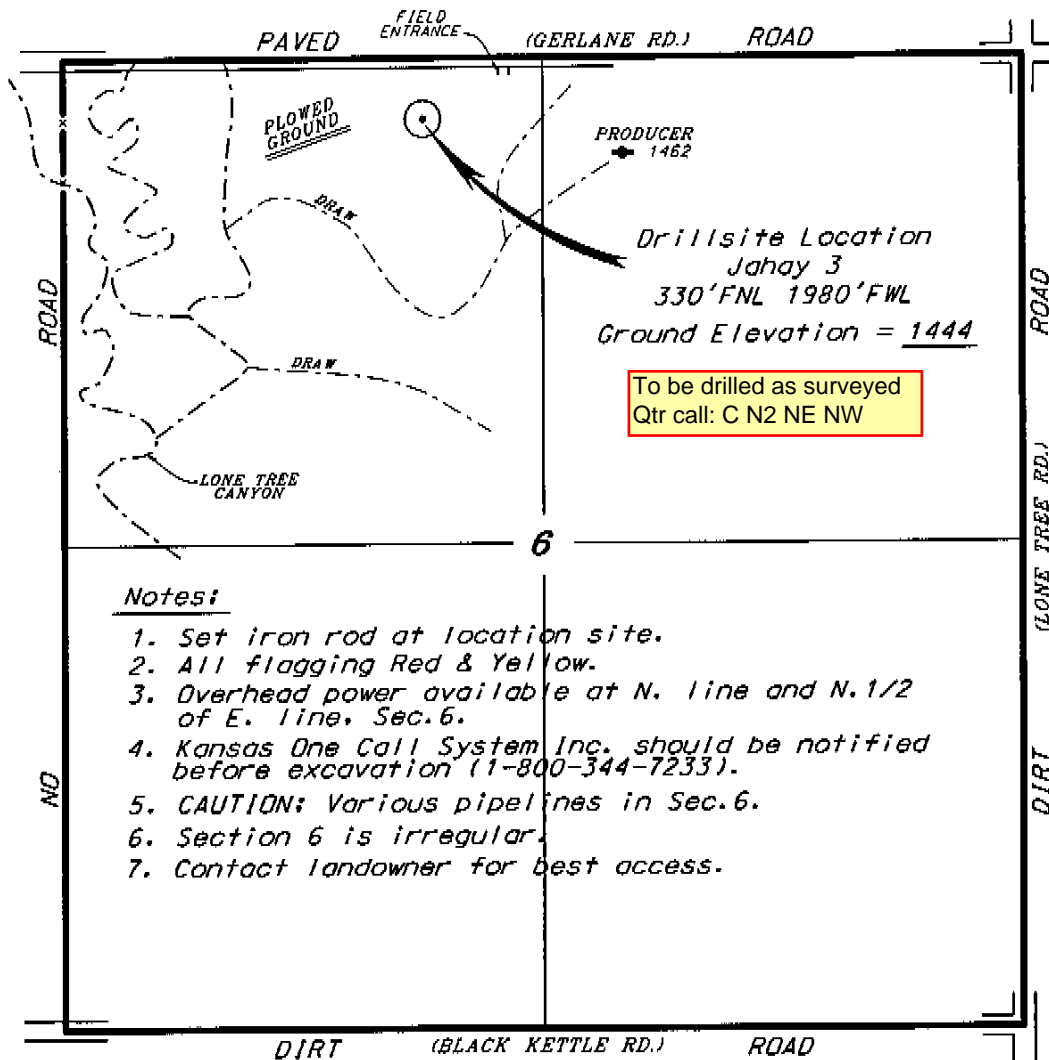 FIELD
ENTRANCE
PAVED (GERLANE RD.) ROAD
PLOWED
GROUND
PRODUCER
1462
DRAW
Drillsite Location
Jahay 3
330'FNL 1980'FWL
Ground Elevation = 1444
ROAD
ROAD
To be drilled as surveyed
Qtr call: C N2 NE NW
DRAW
LONE TREE
CANYON
(LONE TREE RD.)
6
Notes:
1. Set iron rod at location site.
2. All flagging Red & Yellow.
3. Overhead power available at N. line and N.1/2
of E. line, Sec.6.
4. Kansas One Call System Inc. should be notified
before excavation (1-800-344-7233).
5. CAUTION: Various pipelines in Sec.6.
6. Section 6 is irregular.
7. Contact landowner for best access.
NO
DIRT
DIRT (BLACK KETTLE RD.) ROAD